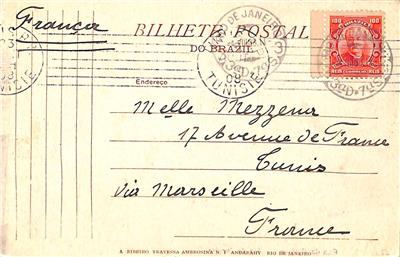 França
BILHETE POSTAL
DO BRAZIL
RIO DE JANEIRO
TUNIS
TUNISIE
09
100 100
REIS REIS
Endereço
Melle Mezzena
17 Avenue de France
Tunis
via Marseille
France
A. RIBEIRO TRAVESSA AMBROSINA N. 1 ANDARAHY RIO DE JANEIRO